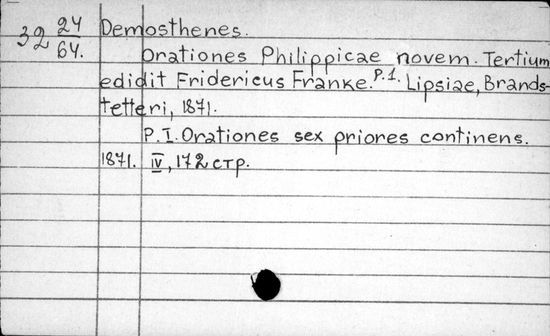 32 24/64. Demosthenes.
Orationes Philippicae novem. Tertium
edidit Fridericus Franke. P.1. Lipsiae, Brands-
tetteri, 1871.
P.I. Orationes sex priores continens.
1871. IV, 172 стр.